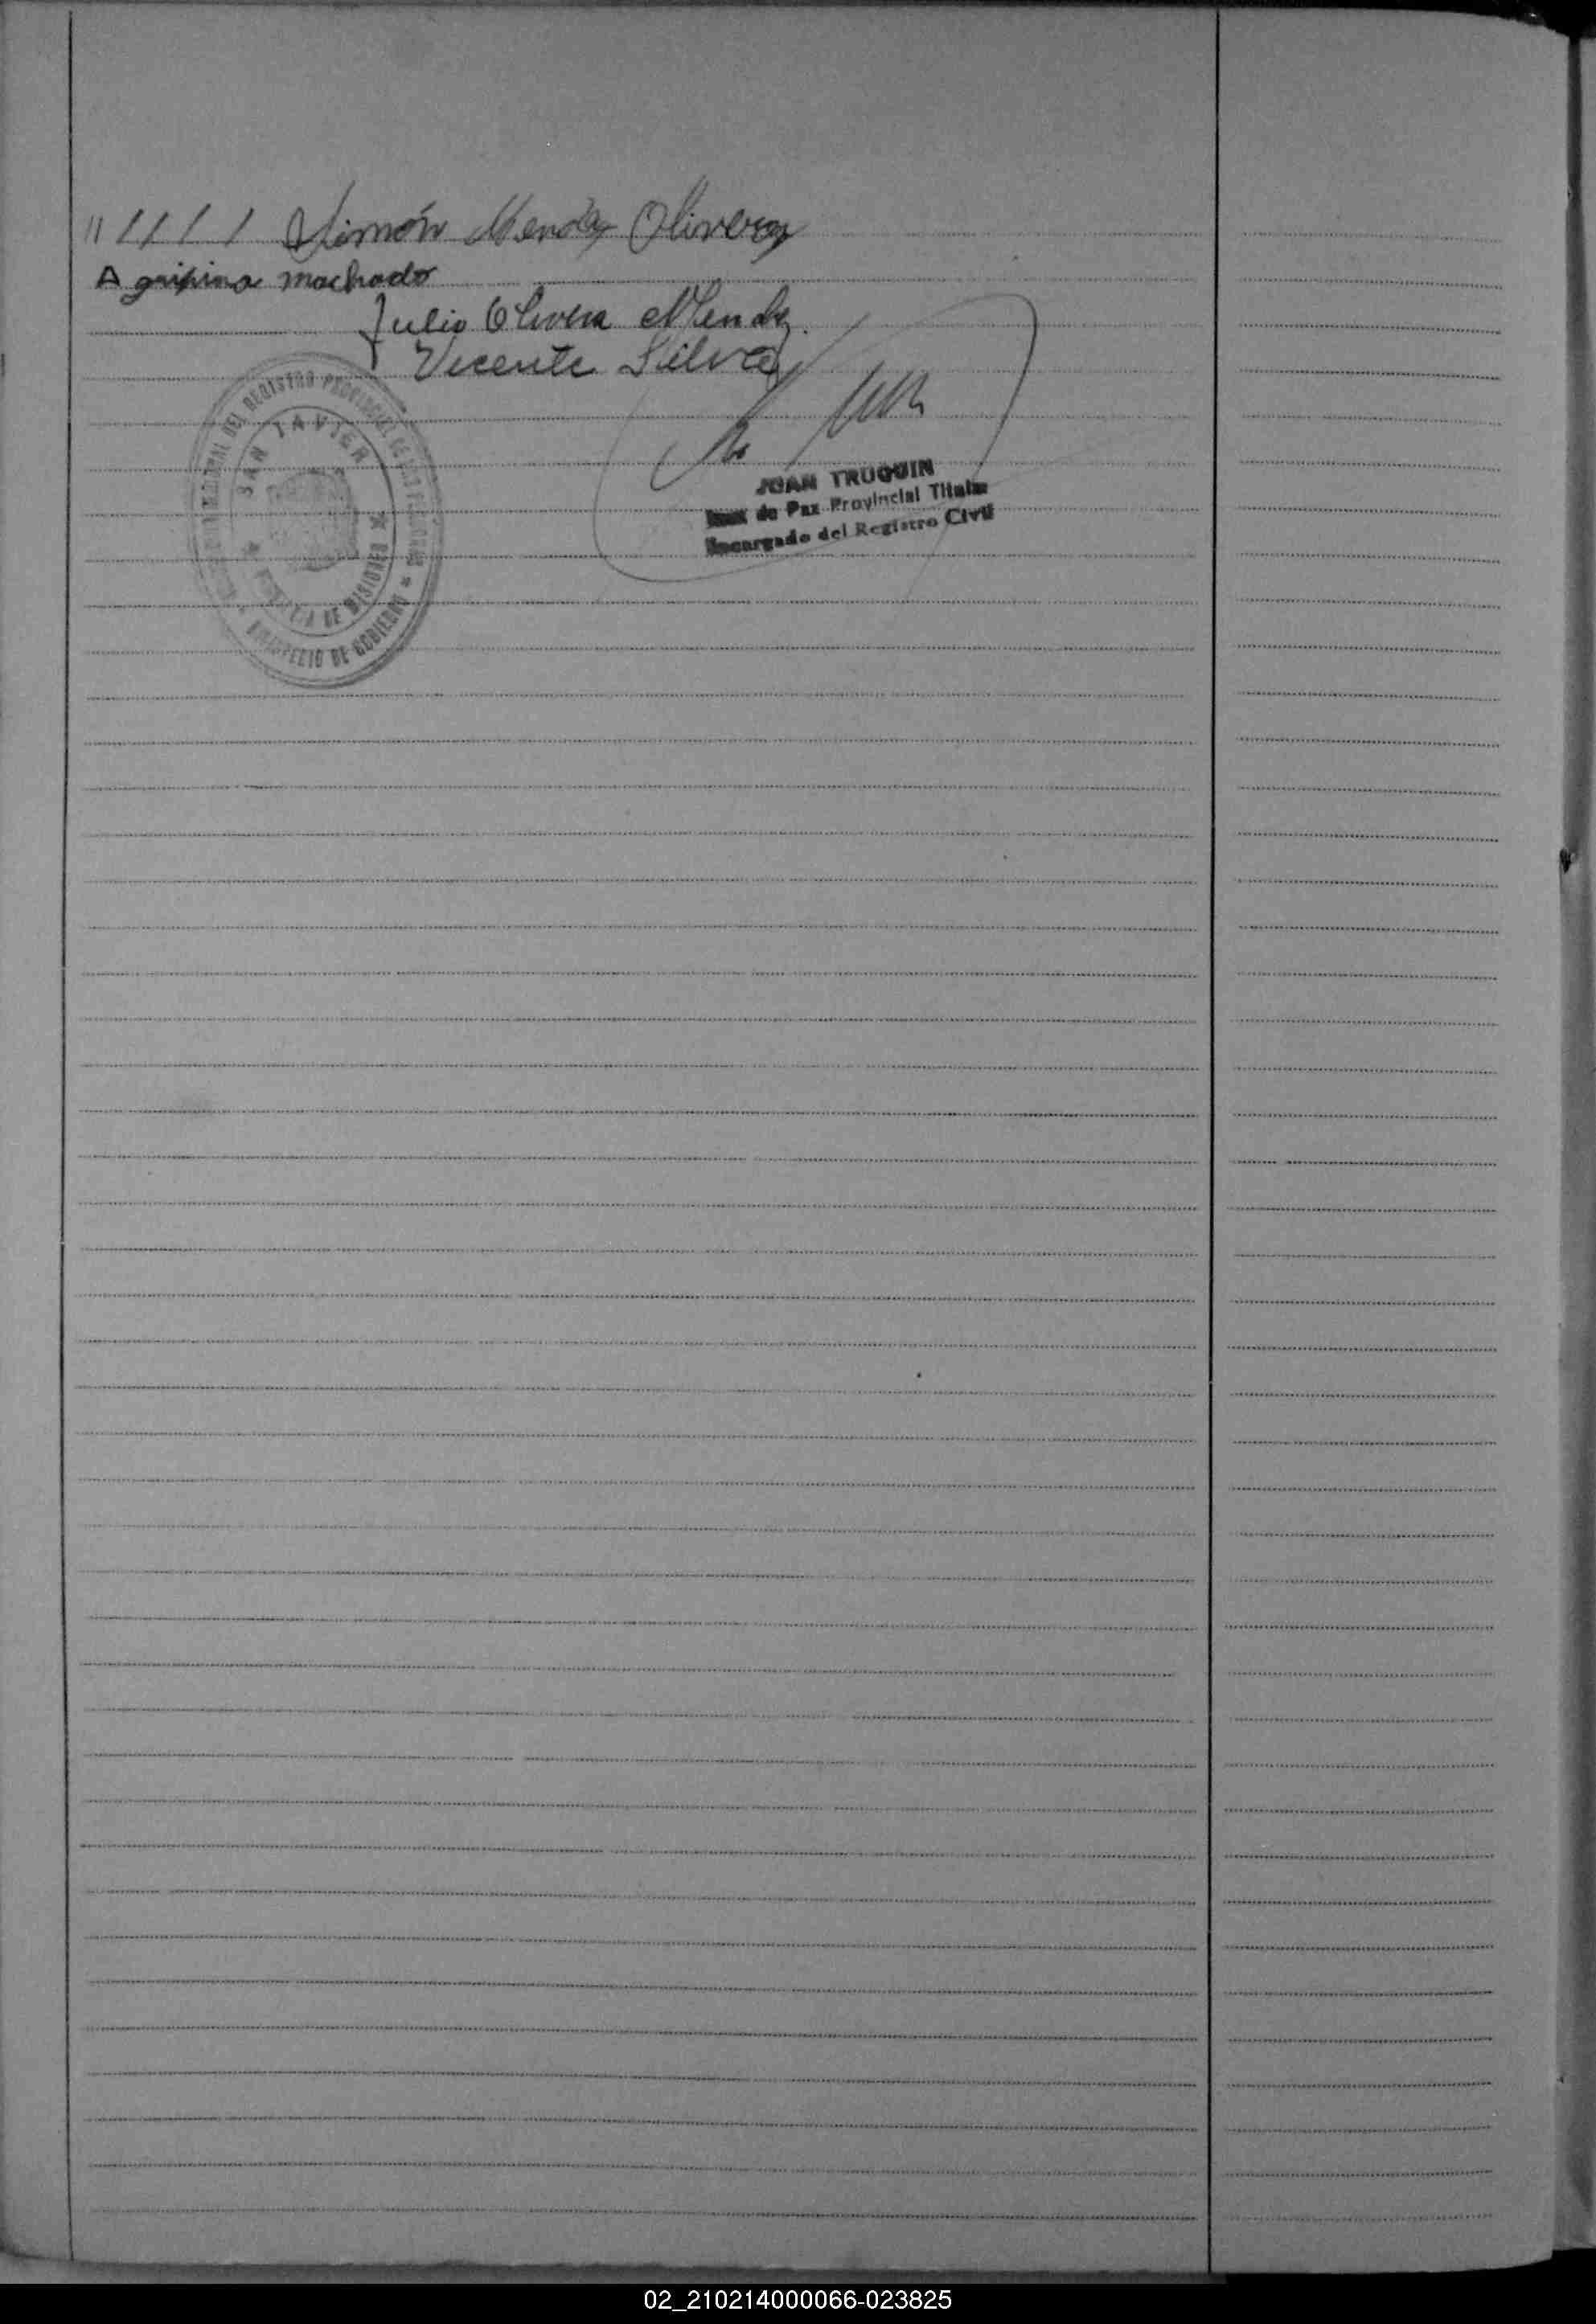 " / / / / Simón Mendez Olivera
Agripina machado
Julio Olivera Mendez
Vicente Silva
JUAN TRUQUIN
Juez de Paz Provincial Titular
Encargado del Registro Civil
DEL REGISTRO PROVINCIAL DE LAS PERSONAS
MINISTERIO DE GOBIERNO
SAN JAVIER
PROVINCIA DE MISIONES
02_210214000066-023825